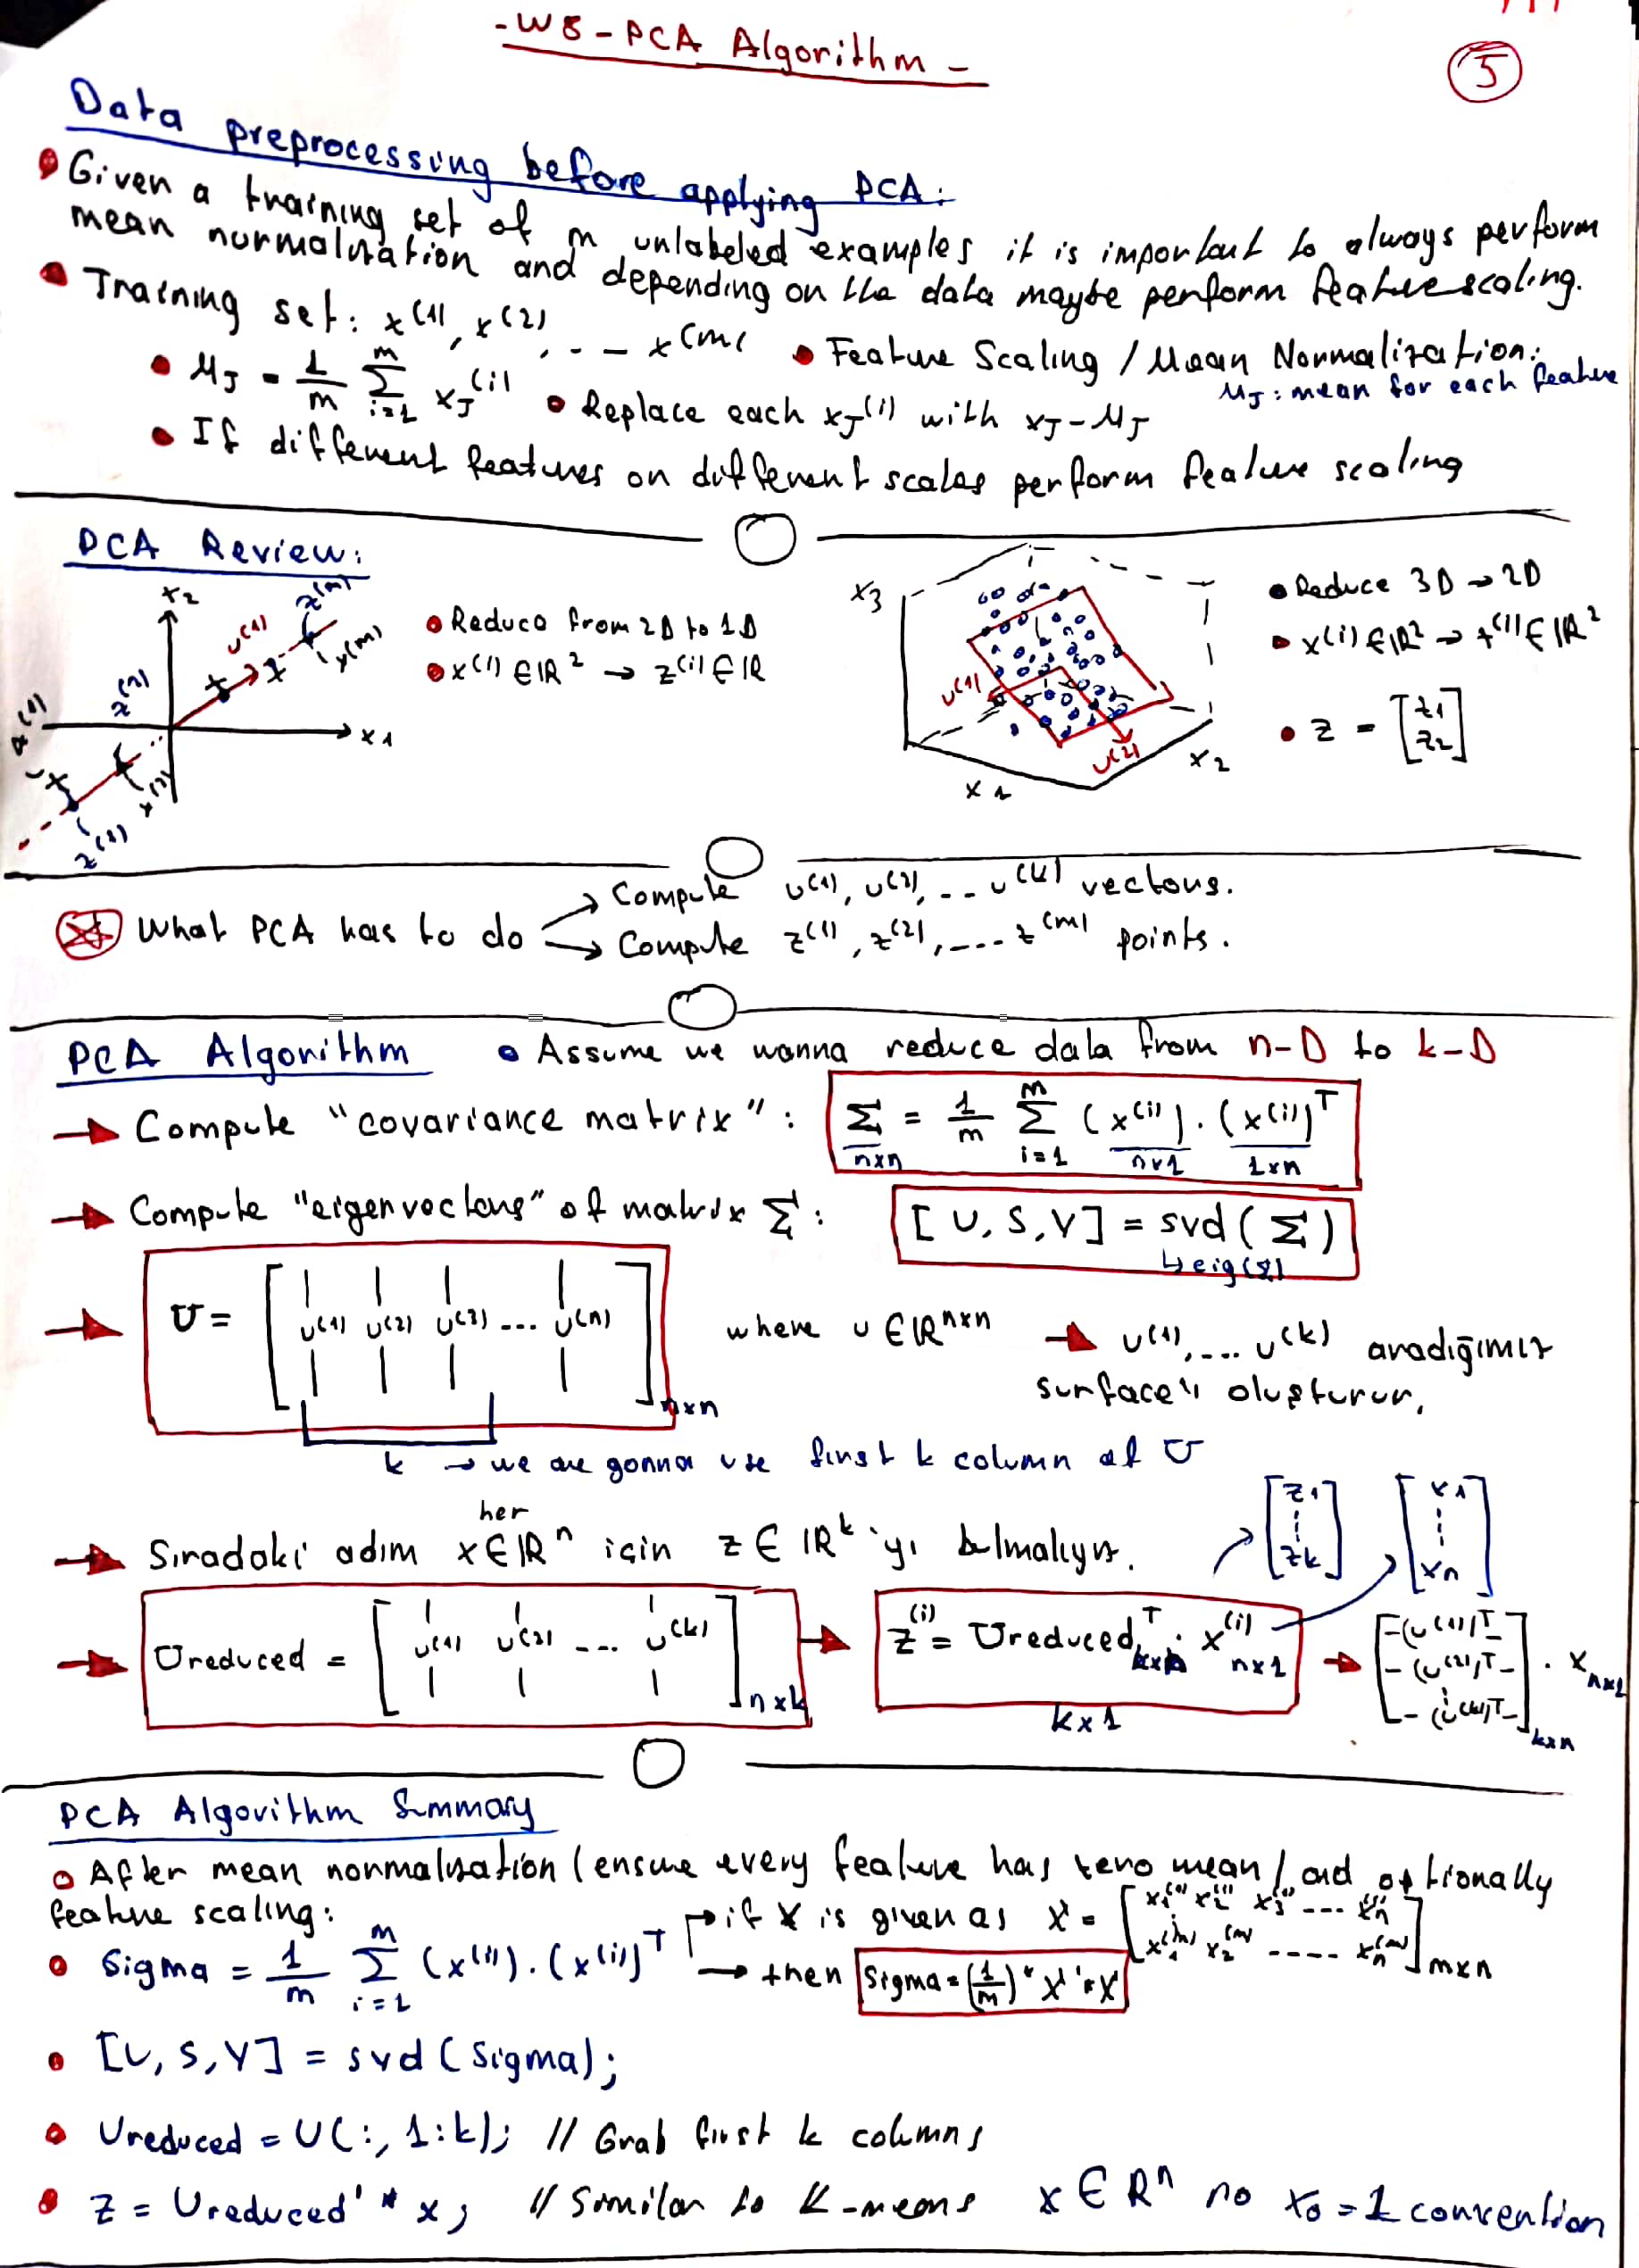 - W8 - PCA Algorithm -
5
Data preprocessing before applying PCA:
Given a training set of m unlabeled examples it is important to always perform
mean normalization and depending on the data maybe perform feature scaling.
Training set: x^(1), x^(2), ... x^(m)
Feature Scaling / Mean Normalization:
μ_J = 1/m Σ_{i=1}^{m} x_J^(i)
Replace each x_J^(i) with x_J - μ_J
μ_J: mean for each feature
If different features on different scales perform feature scaling
PCA Review:
x2
x1
u^(1)
z^(m)
x^(m)
Reduce from 2D to 1D
x^(i) ∈ ℝ^2 → z^(i) ∈ ℝ
x3
x1
x2
u^(1)
u^(2)
Reduce 3D → 2D
x^(i) ∈ ℝ^2 → z^(i) ∈ ℝ^2
z = [z1 z2]
What PCA has to do
→ Compute u^(1), u^(2), ... u^(k) vectors.
→ Compute z^(1), z^(2), ... z^(m) points.
PCA Algorithm
Assume we wanna reduce data from n-D to k-D
→ Compute "covariance matrix": Σ = 1/m Σ_{i=1}^{m} (x^(i)) . (x^(i))^T
nxn nx1 1xn
→ Compute "eigenvectors" of matrix Σ: [U, S, V] = svd(Σ)
↳ eig(Σ)
→ U = [u^(1) u^(2) u^(3) ... u^(n)] nxn
where u ∈ ℝ^nxn
→ u^(1), ... u^(k) aradığımız
surface'i oluşturur.
k → we are gonna use first k column of U
her
→ Sıradaki adım x ∈ ℝ^n için z ∈ ℝ^k 'yı bulmalıyız.
[z1 ... zk]
[x1 ... xn]
→ Ureduced = [u^(1) u^(2) ... u^(k)] nxk
→ z^(i) = Ureduced^T kxn . x^(i) nx1
kx1
→ [-(u^(1))^T- -(u^(2))^T- ... -(u^(k))^T-] kxn . x nx1
PCA Algorithm Summary
After mean normalization (ensure every feature has zero mean) and optionally
feature scaling:
Sigma = 1/m Σ_{i=1}^{m} (x^(i)) . (x^(i))^T
→ if X is given as X = [x1^(1) x2^(1) x3^(1) ... xn^(1) x1^(m) x2^(m) .... xn^(m)] mxn
→ then Sigma = (1/m) * X' * X
[U, S, V] = svd(Sigma);
Ureduced = U(:, 1:k); // Grab first k columns
z = Ureduced' * x; // Similar to K-means x ∈ R^n no x0 = 1 convention